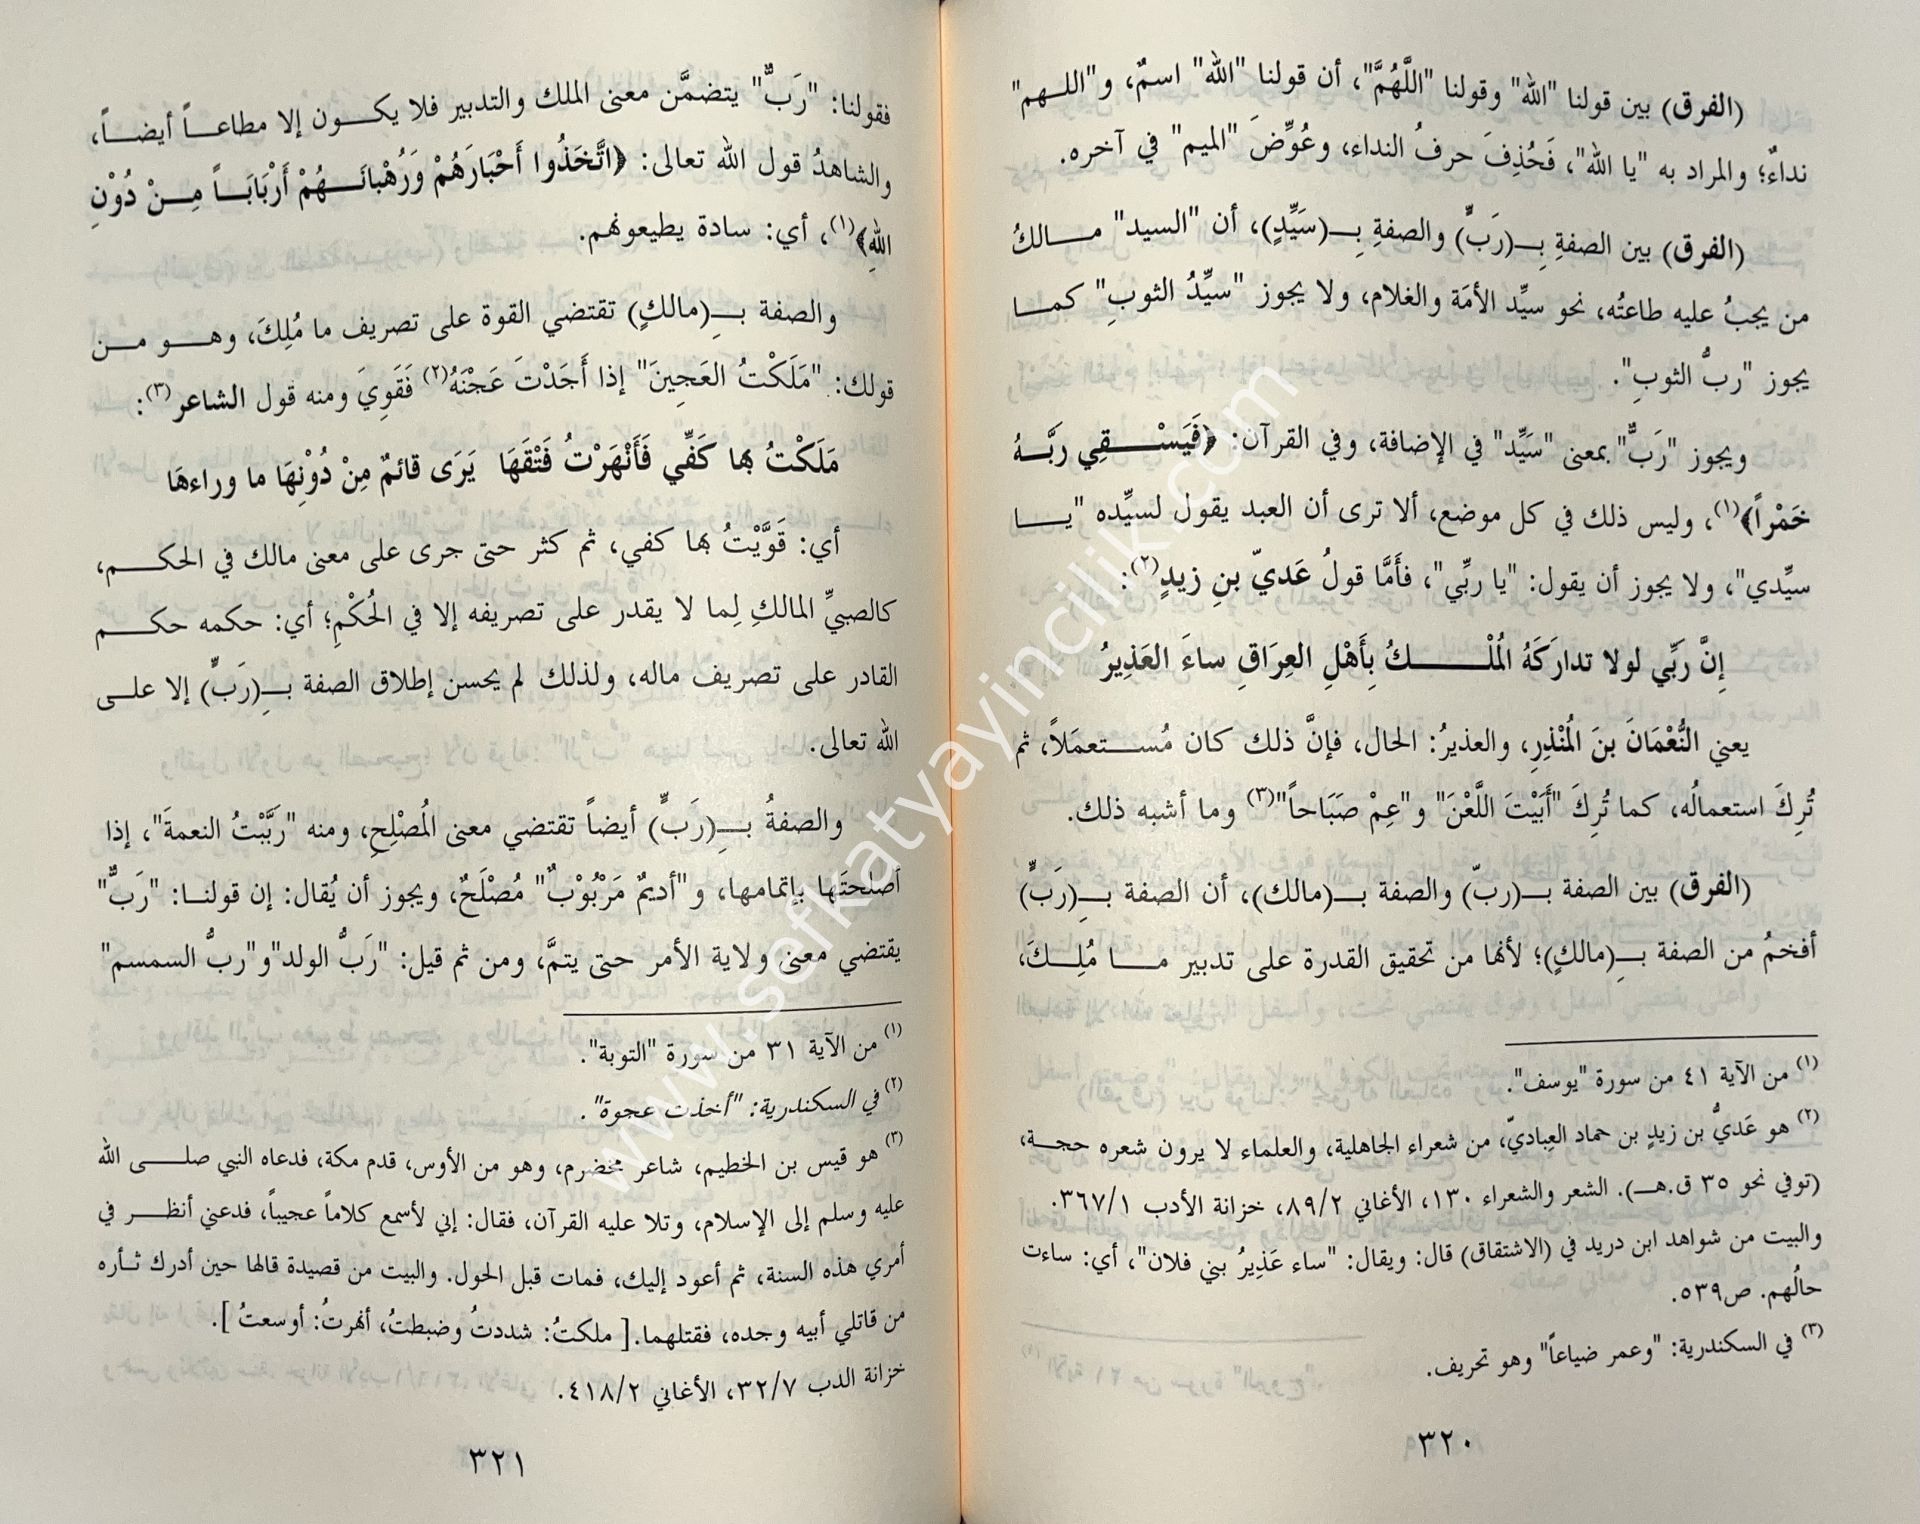 (الفرق) بين قولنا "الله" وقولنا "اللَّهُمَّ"، أن قولنا "الله" اسمٌ، و"اللـهم"
نداءٌ؛ والمراد به "يا الله"، فَحُذِفَ حرفُ النداء، وعُوِّضَ "الميم" في آخره.
(الفرق) بين الصفةِ بِـ(رَبٍّ) والصفةِ بِـ(سَيِّدٍ)، أن "السيد" مـالكُ
من يجبُ عليه طاعتُه، نحو سيِّد الأمَة والغلام، ولا يجوز "سيِّدُ الثوبِ" كمـا
يجوز "ربُّ الثوبِ".
ويجوز "رَبٌّ" بمعنى "سَيِّد" في الإضافة، وفي القرآن: ﴿فَيَسْـقِي رَبَّـهُ
خَمْراً﴾(١)، وليس ذلك في كل موضع، ألا ترى أن العبد يقول لسيِّده "يـا
سيِّدي"، ولا يجوز أن يقول: "يا ربِّي"، فأَمَّا قولُ عَديّ بنِ زيدٍ(٢):
إِنَّ رَبِّي لولا تدارَكَهُ المُلْـكُ بِأَهْلِ العِرَاقِ ساءَ العَذِيرُ
يعني النُّعْمَانَ بنَ المُنْذِرِ، والعذيرُ: الحال، فإنَّ ذلك كان مُسـتعمَلاً، ثم
تُرِكَ استعمالُه، كما تُرِكَ "أَبَيْتَ اللَّعْنَ" و"عِمْ صَبَاحاً"(٣) وما أشبه ذلك.
(الفرق) بين الصفة بـ(ربّ) والصفة بـ(مالك)، أن الصفة بـِ(رَبٍّ)
أفخمُ من الصفة بـِ(مالكٍ)؛ لأنها من تحقيق القدرة على تدبير مـا مُلِـكَ،
(١) من الآية ٤١ من سورة "يوسف".
(٢) هو عَديُّ بن زيدٍ بن حماد العِباديّ، من شعراء الجاهلية، والعلماء لا يرون شعره حجـة،
(توفي نحو ٣٥ ق.هـ). الشعر والشعراء ١٣٠، الأغاني ٨٩/٢، خزانة الأدب ٣٦٧/١.
والبيت من شواهد ابن دريد في (الاشتقاق) قال: ويقال: "ساء عَذِيرُ بني فلان"، أي: ساءت
حالُهم. ص٥٣٩.
(٣) في السكندرية: "وعمر ضياعاً" وهو تحريف.
٣٢٠
فقولنا: "رَبٌّ" يتضمَّن معنى الملك والتدبير فلا يكـون إلا مطاعـاً أيضـاً،
والشاهدُ قول الله تعالى: ﴿اتَّخَذُوا أَحْبَارَهُمْ وَرُهْبانَـهُمْ أَرْبَابَـاً مِـنْ دُوْنِ
اللهِ﴾(١)، أي: سادة يطيعونهم.
والصفة بـِ(مالكٍ) تقتضي القوة على تصريف ما مُلِكَ، وهـو مـن
قولك: "مَلَكْتُ العَجِينَ" إذا أَجَدْتَ عَجْنَهُ(٢) فَقَوِيَ ومنه قول الشاعر(٣):
مَلَكْتُ بها كَفِّي فَأَنْهَرْتُ فَتْقَهَا يَرَى قائمٌ مِنْ دُوْنِهَا ما وراءها
أي: قَوَّيْتُ بها كفي، ثم كثر حتى جرى على معنى مالك في الحكـم،
كالصبيِّ المالكِ لِما لا يقدر على تصريفه إلا في الحُكْمِ؛ أي: حكمه حكـم
القادر على تصريف ماله، ولذلك لم يحسن إطلاق الصفة بـِ(رَبٍّ) إلا علـى
الله تعالى.
والصفةُ بـِ(رَبٍّ) أيضاً تقتضي معنى المُصْلِحِ، ومنه "رَبَّبْتُ النعمةَ"، إذا
أصلحتَها بإتمامها، و"أديمٌ مَرْبُوْبٌ" مُصْلَحٌ، ويجوز أن يُقال: إن قولنـا: "رَبٌّ"
يقتضي معنى ولاية الأمر حتى يتمَّ، ومن ثم قيل: "رَبُّ الولد"و"ربُّ السمسم"
(١) من الآية ٣١ من سورة "التوبة".
(٢) في السكندرية: "أخذت عجوة".
(٣) هو قيس بن الخطيم، شاعر مخضرم، وهو من الأوس، قدم مكة، فدعاه النبي صلـى الله
عليه وسلم إلى الإسلام، وتلا عليه القرآن، فقال: إني لأسمع كلاماً عجيباً، فدعني أنظـر في
أمري هذه السنة، ثم أعود إليك، فمات قبل الحول. والبيت من قصيدة قالها حين أدرك ثـأره
من قاتلي أبيه وجده، فقتلهما.[ ملكتُ: شددتُ وضبطتُ، أنهرتُ: أوسعتُ ].
خزانة الدب ٣٢/٧، الأغاني ٤١٨/٢.
٣٢١
www.safkatyayincilik.com